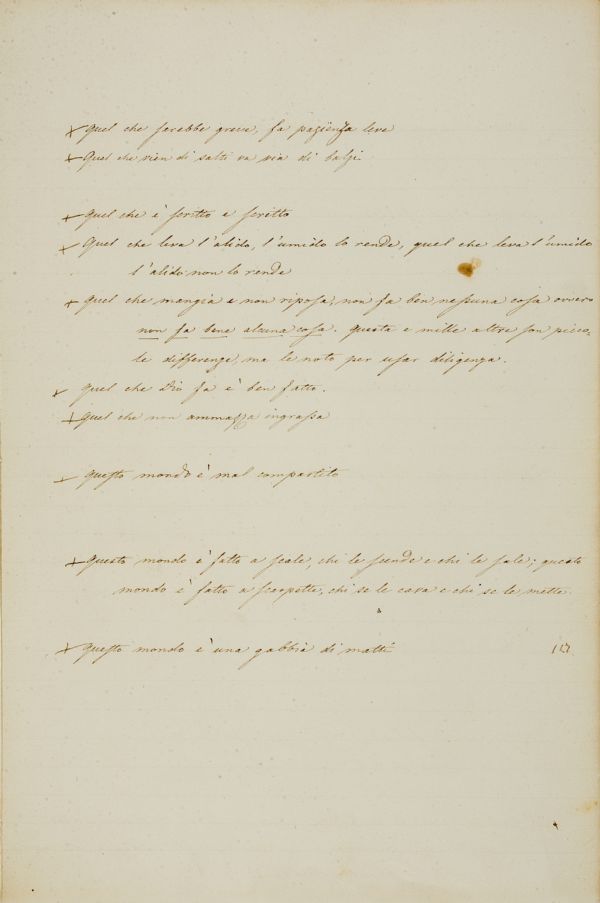 + Quel che sarebbe greve, fa pazienza leve
+ Quel che vien di salti va via di balzi
+ Quel che è scritto e scritto
+ Quel che leva l'alido, l'umido lo rende, quel che leva l'umido
l'alido non lo rende
+ Quel che mangia e non riposa, non fa ben nessuna cosa ovvero
non fa bene alcuna cosa. Questa e mille altre son picco=
le differenze, ma le noto per usar diligenza.
+ Quel che Dio fa è ben fatto.
+ Quel che non ammazza ingrassa
+ Questo mondo è mal compartito
+ Questo mondo è fatto a scale, chi le scende e chi le sale; questo
mondo è fatto a scarpette, chi se le cava e chi se le mette.
+ Questo mondo è una gabbia di matti